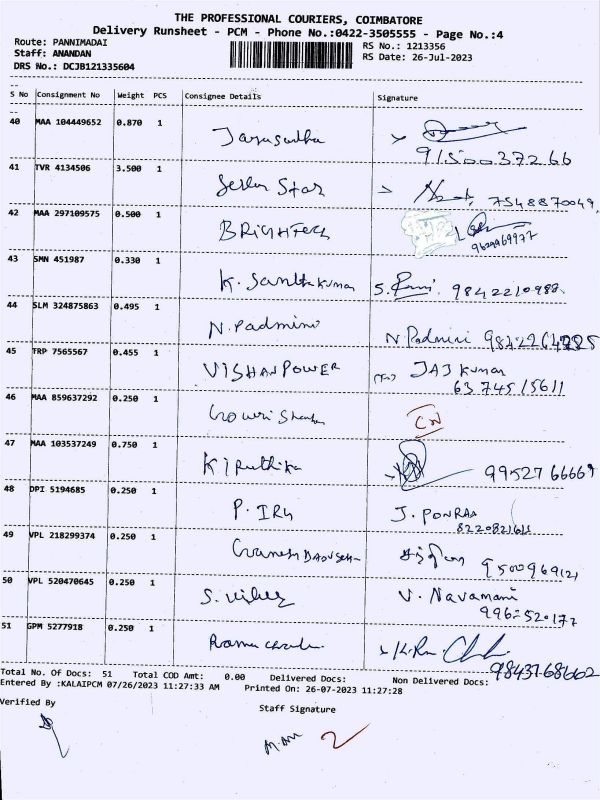 THE PROFESSIONAL COURIERS, COIMBATORE
Delivery Runsheet - PCM - Phone No.:0422-3505555 - Page No.:4
Route: PANNIMADAI
RS No.: 1213356
Staff: ANANDAN
RS Date: 26-Jul-2023
DRS No.: DCJB121335604
S No Consignment No Weight PCS Consignee Details Signature
40 MAA 104449652 0.870 1 Jayasudha
9150037266
41 TVR 4134506 3.500 1 Star 7548870049
42 MAA 297109575 0.500 1 BRIGHTECH
43 SMN 451987 0.330 1 K. Santhakumar S. Rani 9842210988
44 SLM 324875863 0.495 1 N. Padmini N. Padmini
45 TRP 7565567 0.455 1 VISHAN POWER JAJ Kumar
63 745 15611
46 MAA 859637292 0.250 1 Gowri Shankar CN
47 MAA 103537249 0.750 1 Kiruthika 9952766669
48 DPI 5194685 0.250 1 P. J. PONRAJ
8220821611
49 VPL 218299374 0.250 1 Ganesh 9500969121
50 VPL 520470645 0.250 1 V. Navamani
51 GPM 5277918 0.250 1
9843768662
Total No. Of Docs: 51 Total COD Amt: 0.00 Delivered Docs: Non Delivered Docs:
Entered By :KALAIPCM 07/26/2023 11:27:33 AM Printed On: 26-07-2023 11:27:28
Verified By
Staff Signature